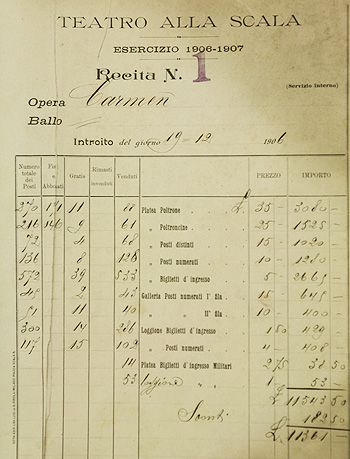 TEATRO ALLA SCALA
ESERCIZIO 1906-1907
Recita N. 1
(Servizio interno)
Opera Carmen
Ballo
Introito del giorno 19-12 1906
Numero totale dei Posti Fis e Abbonati Gratis Rimasti invenduti Venduti PREZZO IMPORTO
270 191 11 Platea Poltrone £ 35 — 3080 —
216 146 9 61 „ Poltroncine 25 — 1525 —
72 4 68 „ Posti distinti 15 — 1020 —
136 8 128 „ Posti numerati 10 — 1280 —
572 39 533 „ Biglietti d'ingresso 5 — 2665 —
45 2 43 Galleria Posti numerati I° fila 15 — 645 —
51 11 40 „ „ II° fila 10 — 400 —
300 14 286 Loggione Biglietti d'ingresso 1 50 429 —
117 15 102 „ Posti numerati 4 — 408 —
14 Platea Biglietti d'ingresso Militari 2 75 38 50
53 Loggione „ „ 1 — 53 —
£ 11543 50
Sconti 182 50
£ 11361 —